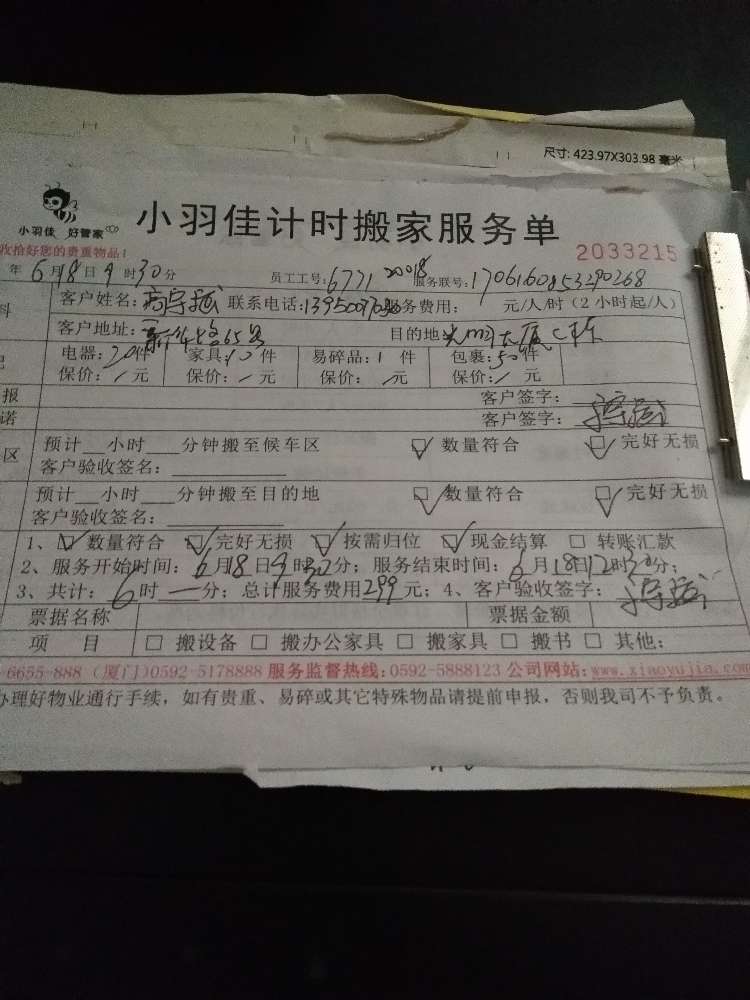 尺寸: 423.97X303.98 毫米
小羽佳 好管家
小羽佳计时搬家服务单
收拾好您的贵重物品!
2033215
年6月18日9时30分 员工工号:6771 20018 服务联号:1706160853290268
料 客户姓名: 联系电话: 服务费用: 元/人/时(2小时起/人)
客户地址:新华路65号 目的地 大厦C栋
电器:20件 家具:10件 易碎品:1件 包裹:50件
保价:/元 保价:/元 保价:/元 保价:/元
报 客户签字:
诺 客户签字:
区 预计__小时__分钟搬至候车区 ☑数量符合 ☑完好无损
客户验收签名:
预计__小时__分钟搬至目的地 ☑数量符合 ☑完好无损
客户验收签名:
1、☑数量符合 ☑完好无损 ☑按需归位 ☑现金结算 □转账汇款
2、服务开始时间:6月18日9时30分;服务结束时间:6月18日12时30分;
3、共计:6时一分;总计服务费用299元;4、客户验收签字:
票据名称 票据金额
项 目 □搬设备 □搬办公家具 □搬家具 □搬书 □其他:
6655-888 (厦门)0592-5178888 服务监督热线:0592-5888123 公司网站:www.xiaoyujia.com
办理好物业通行手续,如有贵重、易碎或其它特殊物品请提前申报,否则我司不予负责。